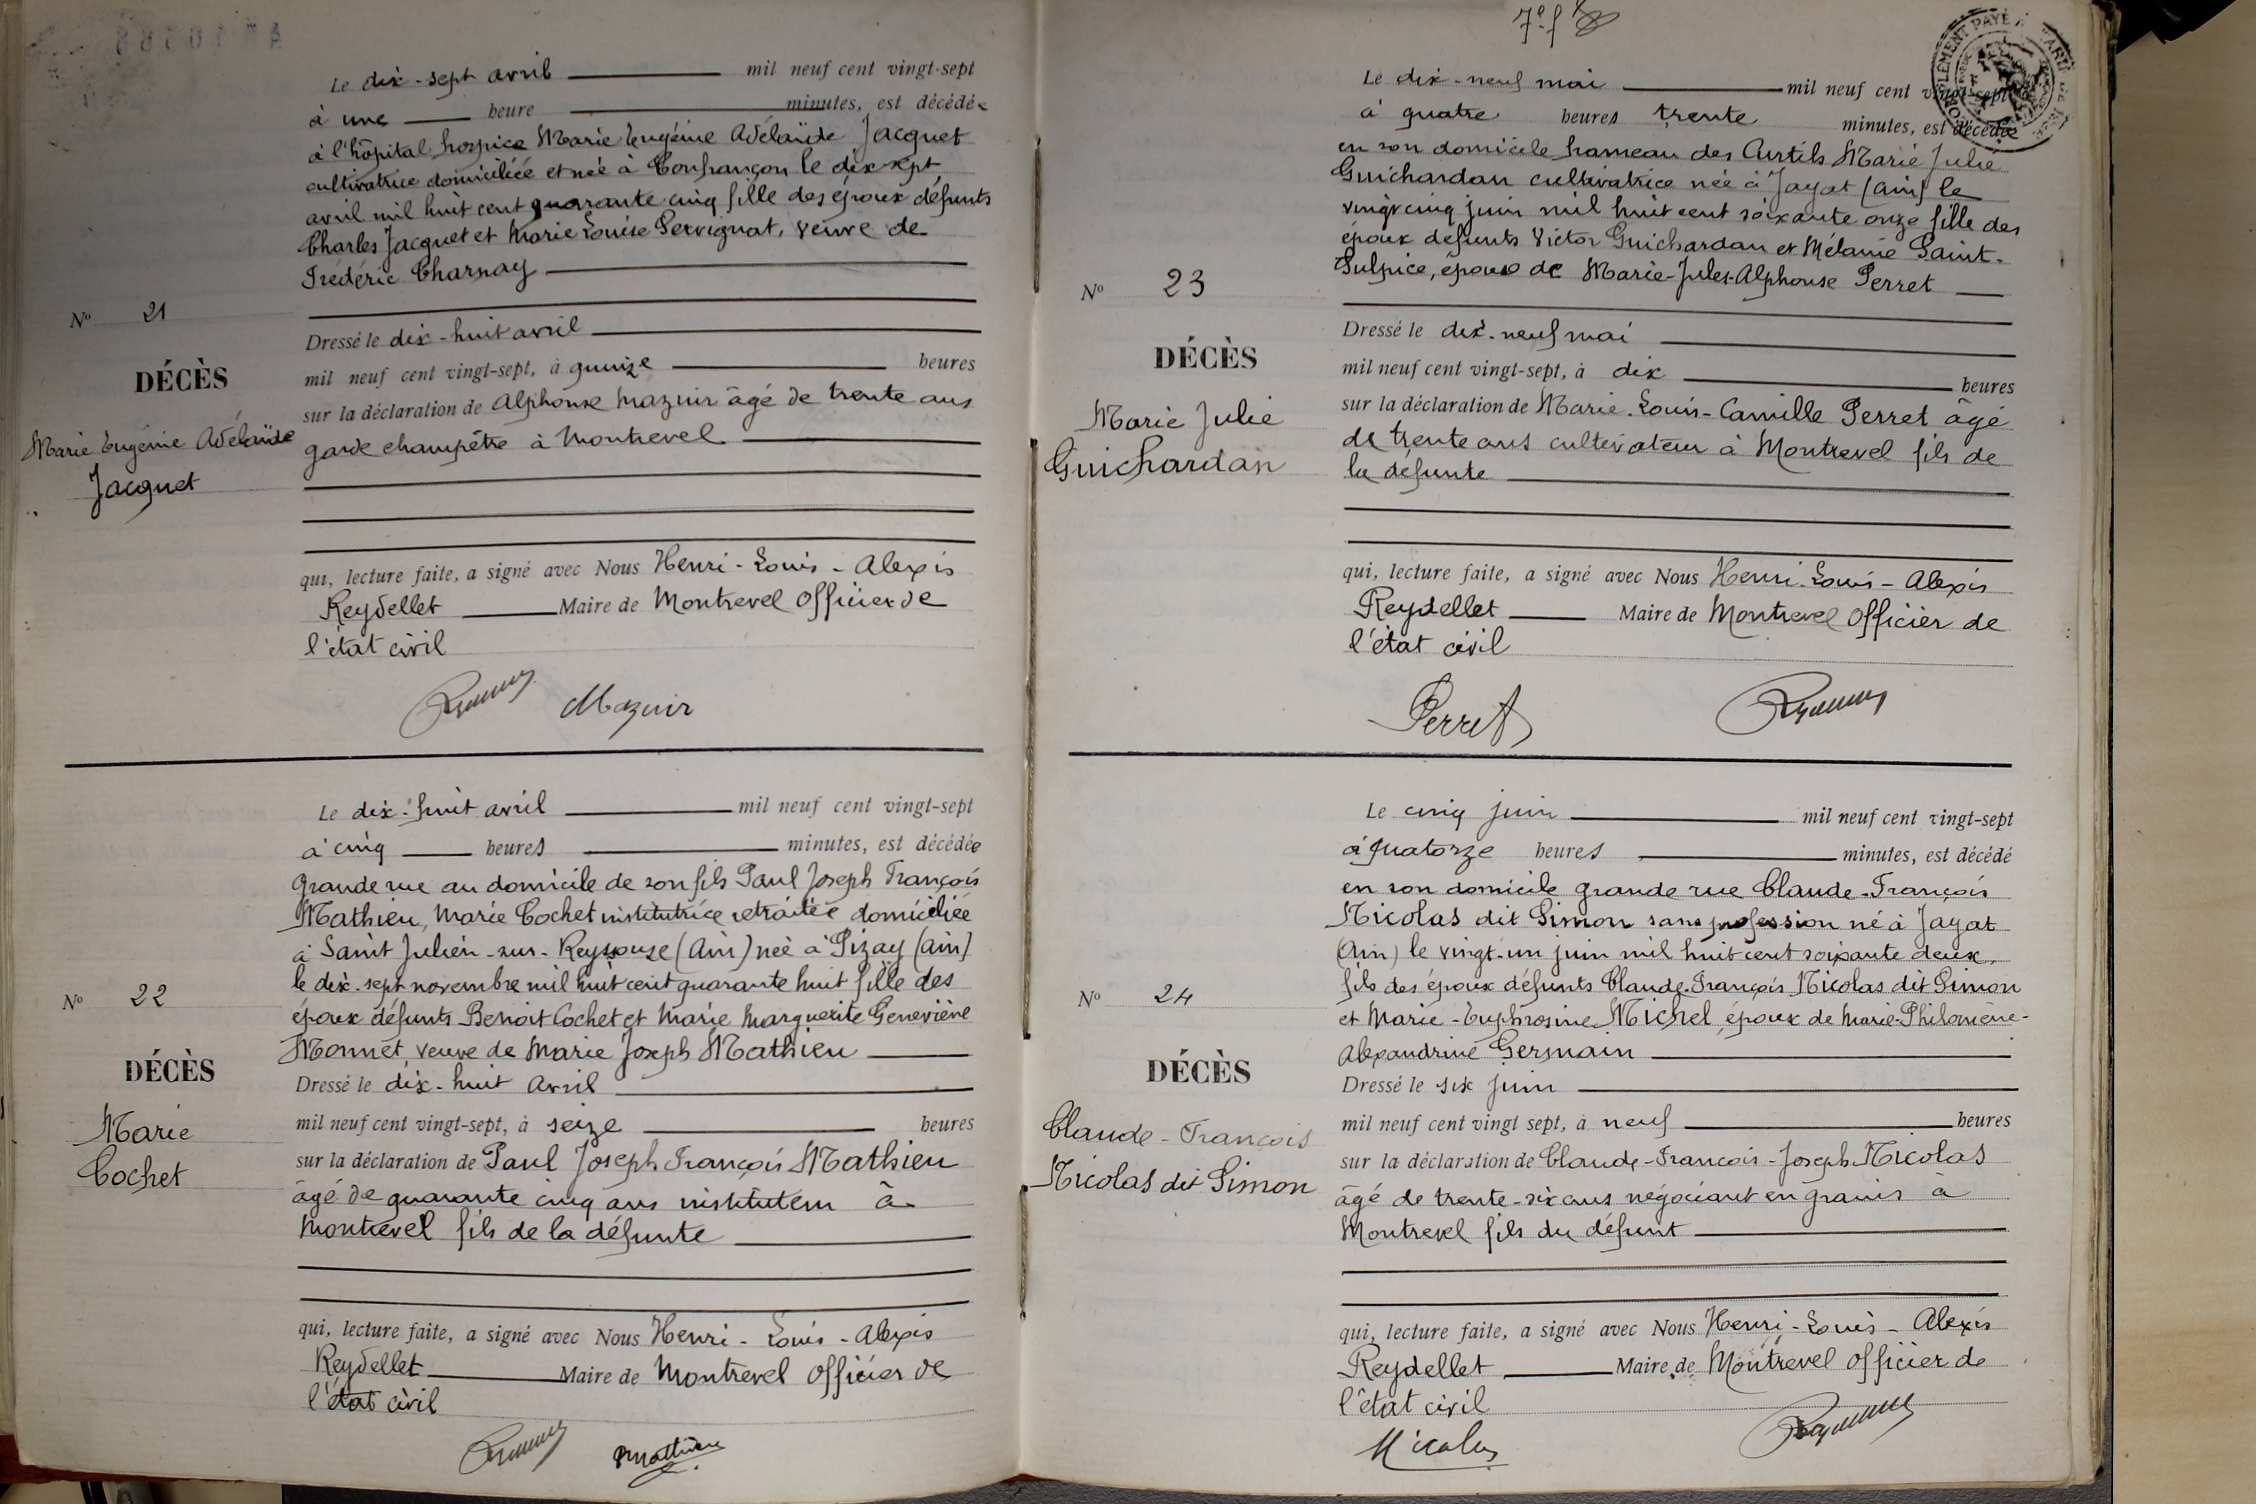 Le dix-sept avril mil neuf cent vingt-sept
à une heure minutes, est décédée
à l'hôpital hospice Marie Eugénie Adélaïde Jacquet
cultivatrice domiciliée et née à Confrançon le dix sept
avril mil huit cent quarante cinq fille des époux défunts
Charles Jacquet et Marie Louise Pervignat, veuve de
Frédéric Charnay
Nº 21
DÉCÈS
Marie Eugénie Adélaïde
Jacquet
Dressé le dix-huit avril
mil neuf cent vingt-sept, à quinze heures
sur la déclaration de Alphonse Mazuir âgé de trente ans
garde champêtre à Montrevel
qui, lecture faite, a signé avec Nous Henri-Louis-Alexis
Reydellet Maire de Montrevel Officier de
l'état civil
Mazuir
Le dix-huit avril mil neuf cent vingt-sept
à cinq heures minutes, est décédée
grande rue au domicile de son fils Paul Joseph François
Mathieu, Marie Cochet institutrice retraitée domiciliée
à Saint Julien-sur-Reyssouze (Ain) née à Pizay (Ain)
le dix-sept novembre mil huit cent quarante huit fille des
époux défunts Benoit Cochet et Marie Marguerite Geneviève
Monnet, veuve de Marie Joseph Mathieu
Nº 22
DÉCÈS
Marie
Cochet
Dressé le dix-huit Avril
mil neuf cent vingt-sept, à seize heures
sur la déclaration de Paul Joseph François Mathieu
âgé de quarante cinq ans instituteur à
Montrevel fils de la défunte
qui, lecture faite, a signé avec Nous Henri-Louis-Alexis
Reydellet Maire de Montrevel Officier de
l'état civil
PMathieu
7e f
Le dix-neuf mai mil neuf cent vingt-sept
à quatre heures trente minutes, est décédée
en son domicile hameau des Curtils Marie Julie
Guichardan cultivatrice née à Jayat (Ain) le
vingt cinq juin mil huit cent soixante onze fille des
époux défunts Victor Guichardan et Mélanie Saint-
Sulpice, épouse de Marie-Jules-Alphonse Perret
Nº 23
DÉCÈS
Marie Julie
Guichardan
Dressé le dix-neuf mai
mil neuf cent vingt-sept, à dix heures
sur la déclaration de Marie-Louis-Camille Perret âgé
de trente ans cultivateur à Montrevel fils de
la défunte
qui, lecture faite, a signé avec Nous Henri-Louis-Alexis
Reydellet Maire de Montrevel Officier de
l'état civil
Perret
Le cinq juin mil neuf cent vingt-sept
à quatorze heures minutes, est décédé
en son domicile grande rue Claude-François
Nicolas dit Simon sans profession né à Jayat
(Ain) le vingt-un juin mil huit cent soixante deux,
fils des époux défunts Claude-François Nicolas dit Simon
et Marie-Euphrosine Michel, époux de Marie-Philomène-
Alexandrine Germain
Nº 24
DÉCÈS
Claude-François
Nicolas dit Simon
Dressé le six juin
mil neuf cent vingt sept, à neuf heures
sur la déclaration de Claude-François-Joseph Nicolas
âgé de trente-six ans négociant en grains à
Montrevel fils du défunt
qui, lecture faite, a signé avec Nous Henri-Louis-Alexis
Reydellet Maire de Montrevel Officier de
l'état civil
Nicolas